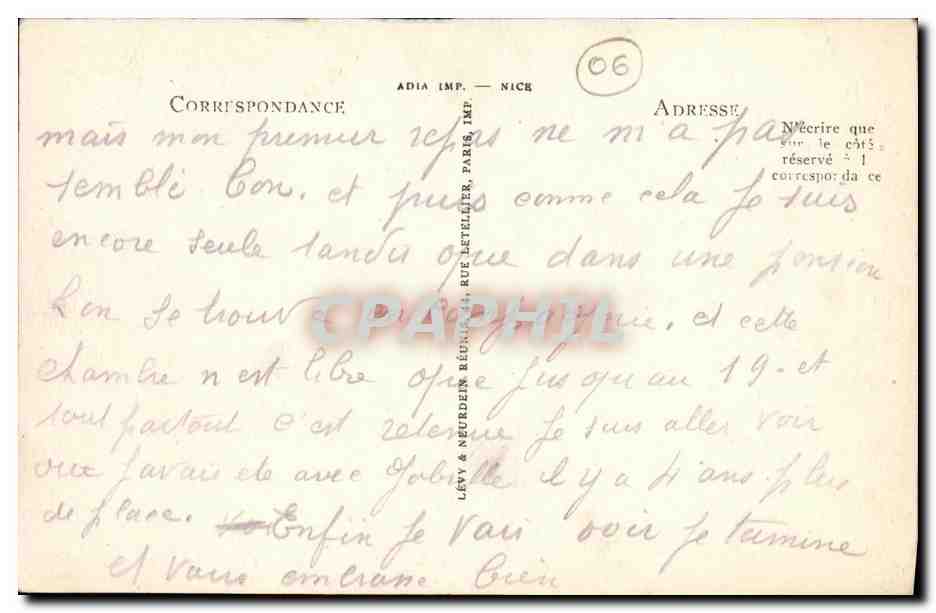 06
ADIA IMP. — NICE
CORRESPONDANCE
ADRESSE
N'écrire que
sur le côté
réservé à l
correspondance
LÉVY & NEURDEIN RÉUNIS, 44, RUE LETELLIER, PARIS, IMP.
mais mon premier repas ne m'a pas
semblé bon. et puis comme cela je suis
encore seule tandis que dans une pension
l'on se trouve en compagnie. et cette
chambre n'est libre que jusqu'au 19. et
tout partout c'est retenue je suis aller voir
ou javais ete avec il y a 4 ans plus
de place. Enfin je vais voir je termine
et vous embrasse bien
CPAPHIL